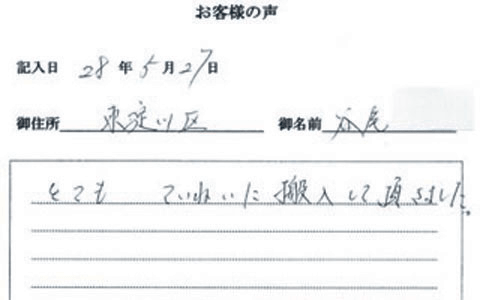 お客様の声
記入日 28 年 5 月 27 日
御住所 東淀川区 御名前 谷尾
とても ていねいに搬入して頂きました。